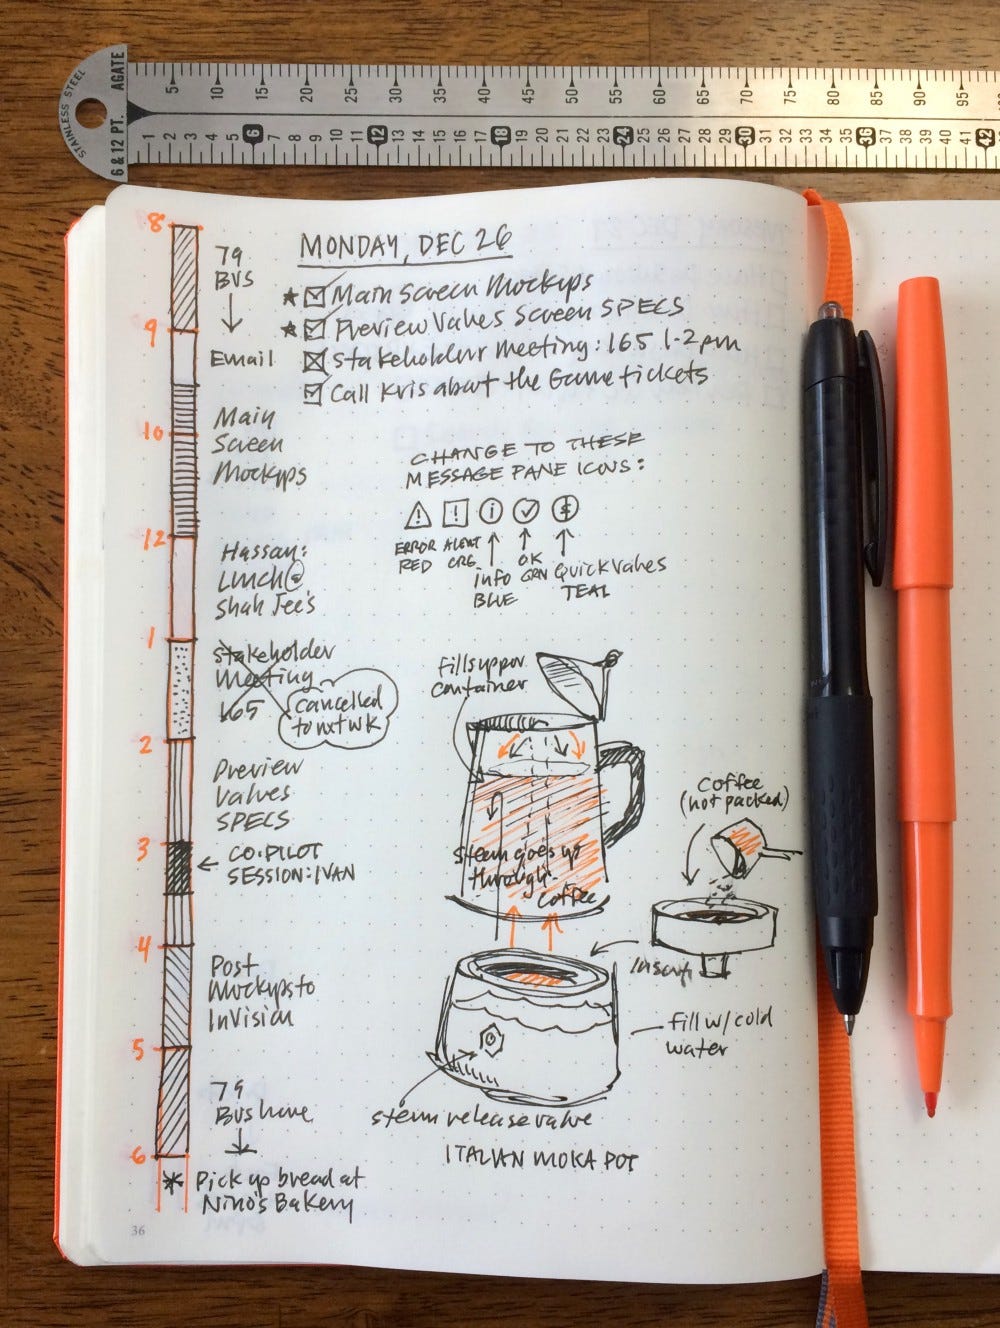 STAINLESS STEEL
6 & 12 PT. AGATE
5 10 15 20 25 30 35 40 45 50 55 60 65 70 75 80 85 90 95
1 2 3 4 5 6 7 8 9 10 11 12 13 14 15 16 17 18 19 20 21 22 23 24 25 26 27 28 29 30 31 32 33 34 35 36 37 38 39 40 41 42
MONDAY, DEC 26
Main Screen Mockups
Preview Values Screen SPECS
Stakeholder Meeting: 165 1-2pm
Call Kris about the Game tickets
8
79
BUS
9
Email
10
Main
Screen
Mockups
12
Hassan:
Lunch@
Shah Jee's
1
Stakeholder
Meeting
165
cancelled
to nxt wk
2
Preview
Values
SPECS
3
CO-PILOT
SESSION: IVAN
4
Post
Mockups to
InVision
5
79
Bus home
6
* Pick up bread at
Nino's Bakery
36
CHANGE TO THESE
MESSAGE PANE ICONS:
! ! i $
ERROR
RED
ALERT
ORG
info
BLUE
OK
GRN
Quick Values
TEAL
fills upper
container
steam goes up
through
coffee
coffee
(not packed)
insert
fill w/ cold
water
steam release valve
ITALIAN MOKA POT